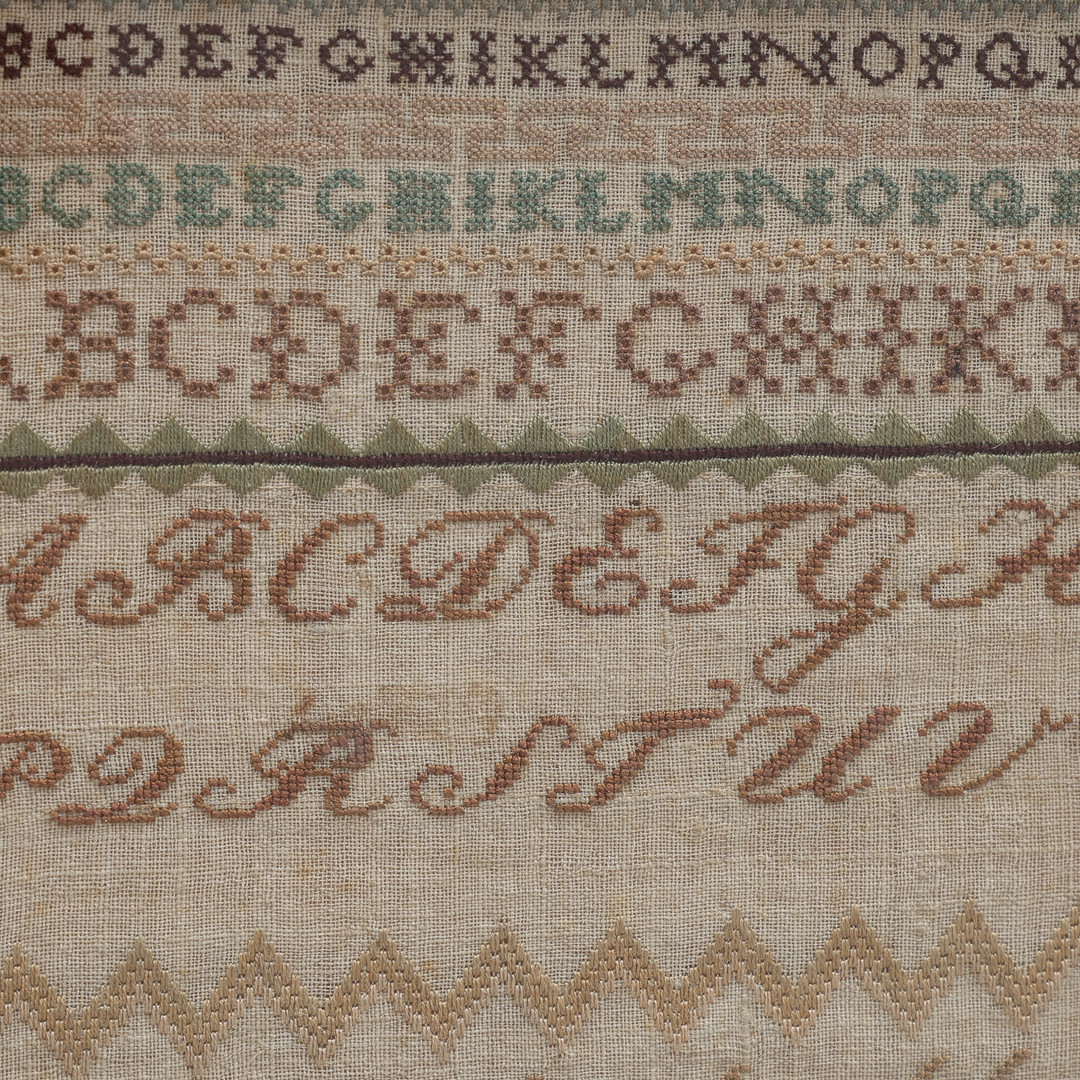 BCDEFGHIKLMNOPQ
BCDEFGHIKLMNOPQ
ABCDEFGHIK
ABCDEFGH
PQRSTUV